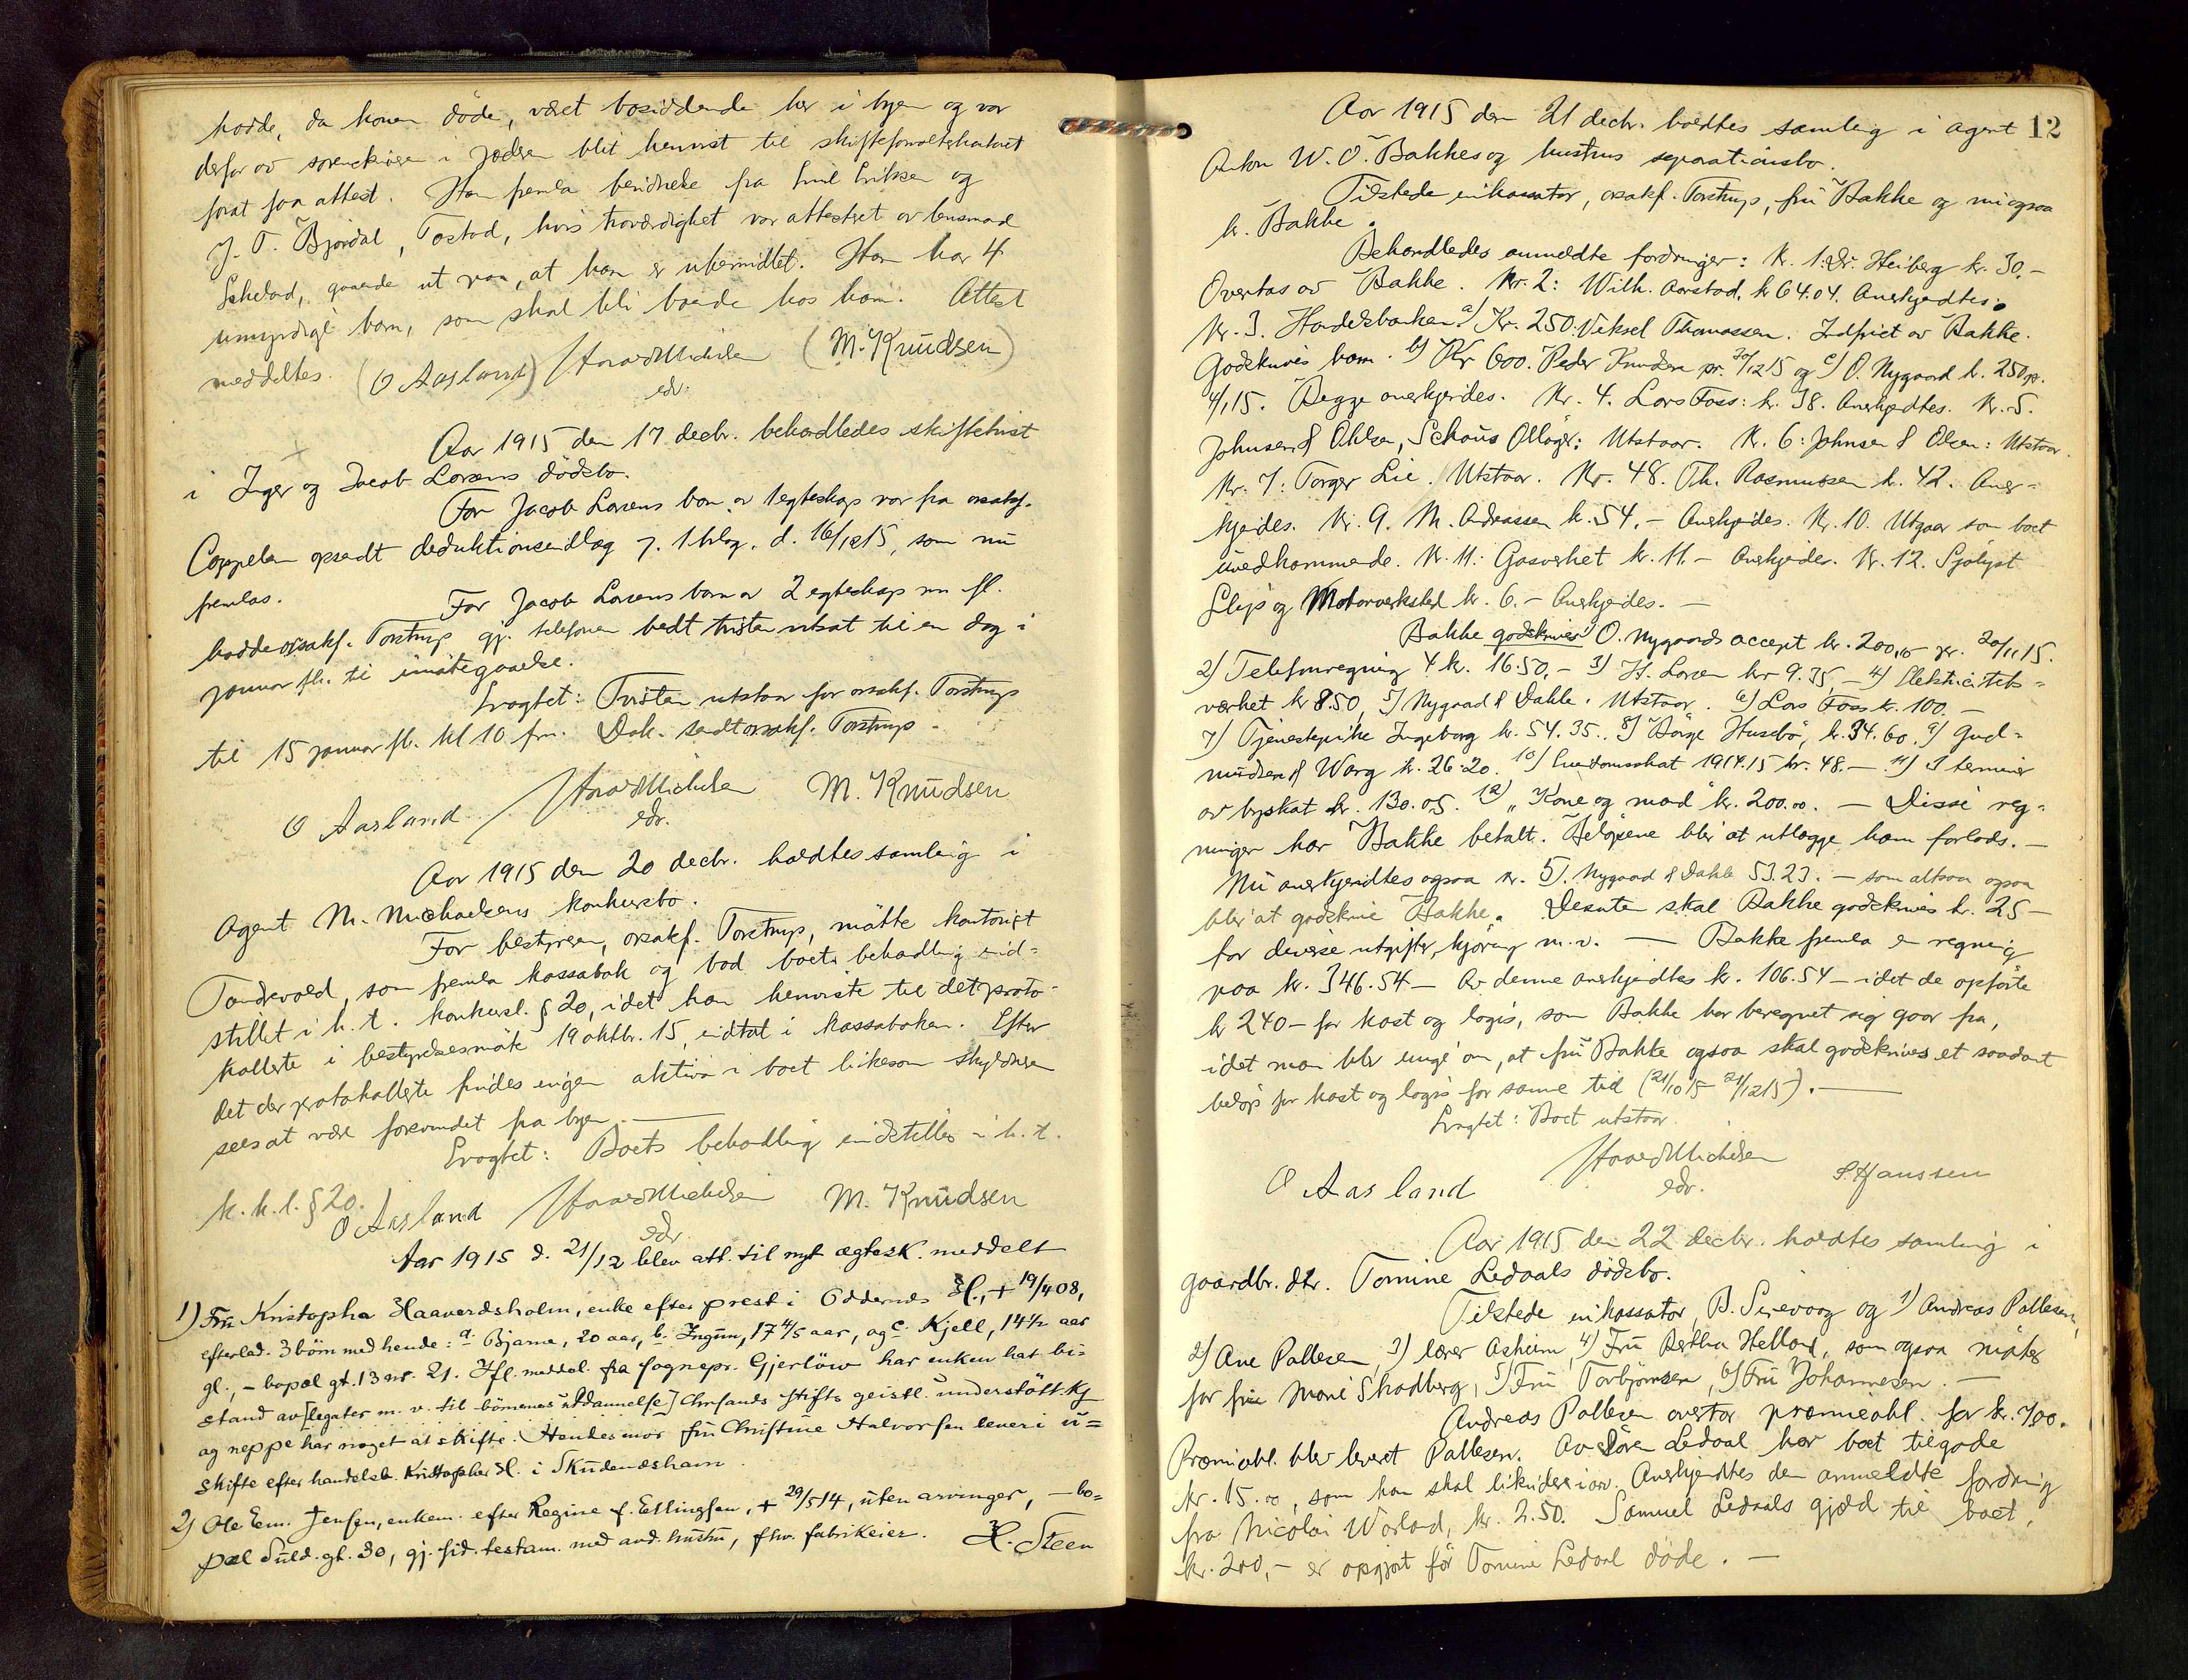 hadde, da konen døde, været bosiddende her i byen og var
derfor av sorenskriveren i Jæderen blit henvist til skifteforvalterkontoret
forat faa attest. Han fremla beviдnelse fra Emil Eriksen og
J. T. Bjordal, Tastad, hvis troværdighet var attestert av lensmand
gaaende ut paa, at han er ubemidlet. Han har 4
umyndige barn, som skal bli boende hos ham. Attest
meddeltes. (O Aasland) HaraldMichelsen (M. Knudsen)
edv.
Aar 1915 den 17 decbr. behandledes skiftetvist
i Inger og Jacob Larsens dødsbo.
For Jacob Larsens barn av 1 egteskap var fra orsakf.
Coppelen opsendt deduktionsindlæg j. 1 bilag, d. 16/1215, som nu
fremlas.
For Jacob Larsens barn av 2 egteskap nu fl.
hadde orsakf. Torstrup gj. telefonen bedt tvisten utsat til en dag i
januar fk. til imøtegaaelse.
Eragtet: Tvisten utstaar for orsakf. Torstrup
til 15 januar fk. kl 10 fm. Dok. sendt orsakf. Torstrup.
O Aasland HaraldMichelsen M. Knudsen
edv.
Aar 1915 den 20 decbr. holdtes samling i
Agent M. Michaelsens konkursbo.
For bestyreren, orsakf. Torstrup, møtte kontorist
Tandrevold, som fremla kassabok og bad boets behandling ind-
stillet i h. t. konkursl. § 20, idet han henviste til det proto-
kollerte i bestyrelsesmøte 19 oktbr. 15, indtat i kassaboken. Efter
det der protokollerte findes ingen aktiva i boet likesom skyldneren
sees at være forsvundet fra byen.
Eragtet: Boets behandling indstilles i h. t.
k. k. l. § 20.
O Aasland HaraldMichelsen M. Knudsen
edv.
Aar 1915 d. 21/12 blev att. til nyt ægtesk. meddelt
1) Fru Kristopha Haaverdsholm, enke efter prest i Oddernes H., + 19/4 08,
efterlad. 3 børn med hende: a. Bjarne, 20 aar, b. Ingun, 17 4/5 aar, og c. Kjell, 14 1/2 aar
gl., – bopæl gt. 13 nr. 21. Ifl. meddel. fra sognepr. Gjerløw har enken hat bi-
stand av [legater m. v. til børnenes utdannelse] Chrsands stifts geistl. understøtt. kj
og neppe har noget at skifte. Hendes mor fru Christine Halvorsen lever i u=
skifte efter handelsb. Kristopher H. i Skudeneshavn.
2) Ole Em. Jensen, enkem. efter Regine f. Ellingsen, + 29/5 14, uten arvinger, – bo=
pæl Suld. gt. 30, gj. sid. testam. med avd. hustru, fhv. fabrikeier. H. Steen
12
Aar 1915 den 21 decbr. holdtes samling i agent
Anton W. O. Bakkes og hustrus separationsbo.
Tilstede inkassator, orsakf. Torstrup, fru Bakke og nu ogsaa
hr. Bakke.
Behandledes anmeldte fordringer: Nr. 1: Dr. Heiberg kr. 30.–
Overtas av Bakke. Nr. 2: Wilh. Aarstad, kr 64.04. Anerkjendtes.
Nr. 3. Handelsbanken: a) Kr. 250. Veksel Thomassen. Indfriet av Bakke.
Godskrives ham. b) Kr 600. Peder Knudsen pr. 30/1215 og c) O. Nygaard kr. 250 pr.
4/115. Begge anerkjendes. Nr. 4. Lars Foss: kr. 38. Anerkjendtes. Nr. 5.
Johnsen & Ohlsen, Schous Ølloger: Utstaar. Nr. 6: Johnsen & Olsen: Utstaar.
Nr. 7: Torger Lie. Utstaar. Nr. 48. Th. Rasmussen kr. 42. Aner-
kjendes. Nr. 9. M. Andreassen kr. 54.– Anerkjendes. Nr. 10. Utgaar som boet
uvedkommende. Nr. 11: Gasverket kr. 11.– Anerkjendes. Nr. 12. Sjølyst
Slip og Motorverksted kr. 6.– Anerkjendes. –
Bakke godskrives 1) O. Nygaards accept kr. 200,00 pr. 20/1115.
2) Telefonregning 4 kr. 16.50,– 3) H. Larsen kr 9.35,– 4) Elektricitets-
verket kr 8.50, 5) Nygaard & Dahle. Utstaar. 6) Lars Foss kr. 100.–
7) Tjenestepike Ingeborg kr. 54.35. 8) Børge Husebø, kr. 34.60. 9) Gud-
mundsen & Warg kr. 26.20. 10) Eiendomsskat 1914.15 kr. 48.– 11) 1 termin
av byskat kr. 130.05. 12) "Kone og mad" kr. 200.00. – Disse reg-
ninger har Bakke betalt. Beløpene blir at utlægge ham forlods. –
Nu anerkjendtes ogsaa nr. 5). Nygaard & Dahle 53.23. – som altsaa ogsaa
blir at godskrive Bakke. Desuten skal Bakke godskrives kr. 25–
for diverse utgifter, kjøring m. v. – Bakke fremla en regning
paa kr. 346.54 – Av denne anerkjendtes kr. 106.54 – idet de opførte
kr 240 – for kost og logis, som Bakke har beregnet sig gaar fra,
idet man blev enige om, at fru Bakke ogsaa skal godskrives et saadant
beløp for kost og logis for samme tid (21/1015 – 21/1215). –
Eragtet: Boet utstaar.
O Aasland HaraldMichelsen S. Hanssen
edv.
Aar 1915 den 22 decbr. holdtes samling i
gaardbr. dtr. Tomine Ledaals dødsbo.
Tilstede inkassator, B. Sirevaag og 1) Andreas Pallesen,
2) Ane Pallesen, 3) lærer Asheim, 4) Fru Bertha Helland, som ogsaa møter
for fru Marie Skadberg, 5) Fru Torbjørnsen, 6) Fru Johannesen. –
Andreas Pallesen overtar præmieobl. for kr. 700.
Præmieobl. blev leveret Pallesen. Av Søren Ledaal har boet tilgode
kr. 15.00, som han skal likvidere i arv. Anerkjendtes den anmeldte fordring
fra Nicolai Worlad, kr. 2.50. Samuel Ledaals gjæld til boet,
kr. 200,– er opgjort før Tomine Ledaal døde. –